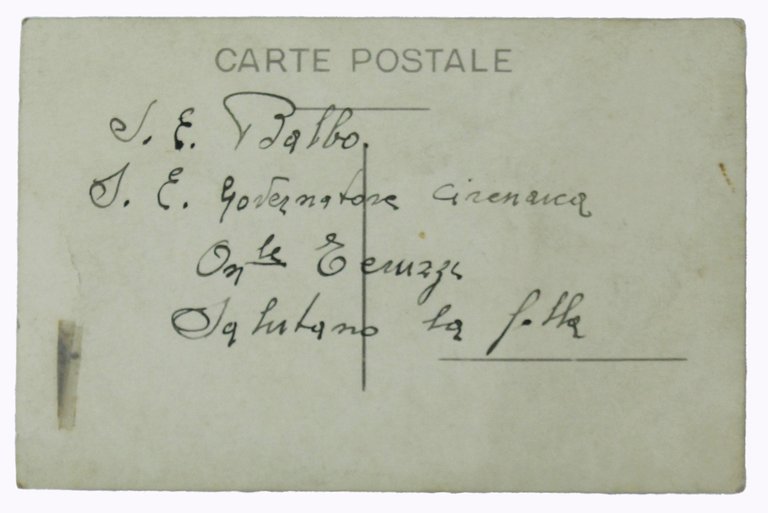 CARTE POSTALE
S. E. Balbo.
S. E. Governatore Cirenaica
On.le Teruzzi
Salutano la folla